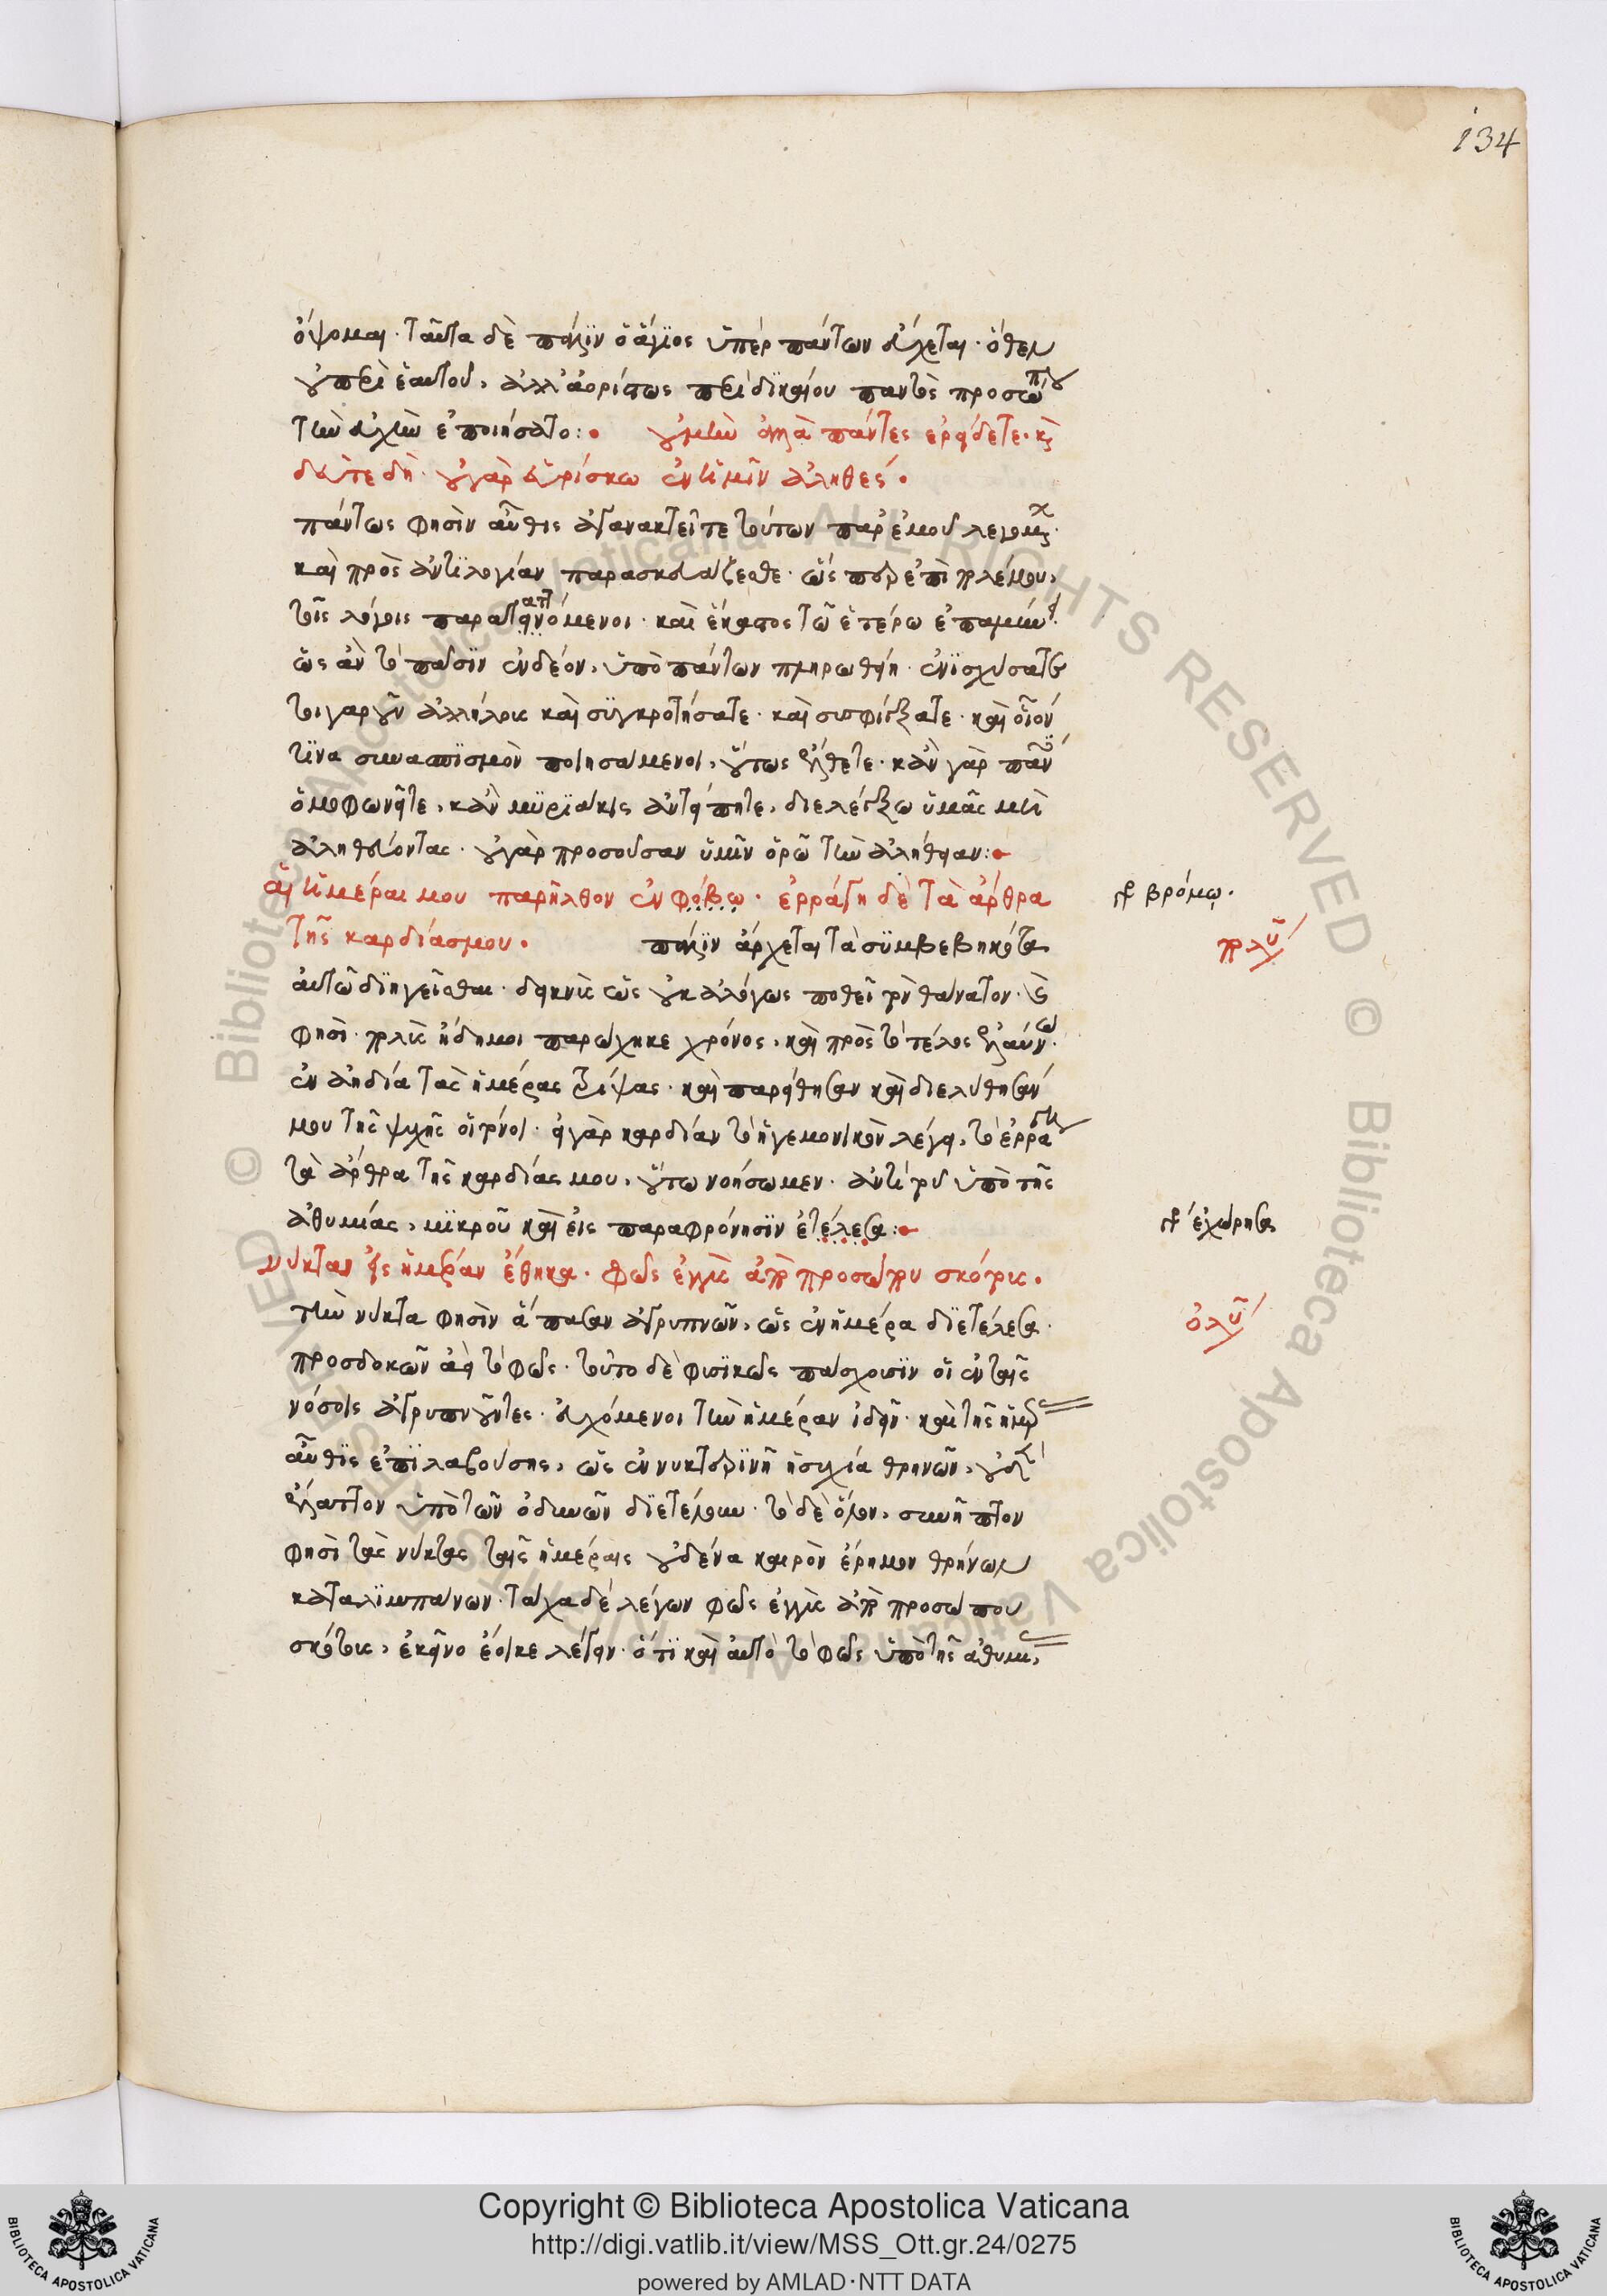 134
ὄψομαι· ταῦτα δὲ πάλιν ὁ ἅγιος ὑπὲρ πάντων εὔχεται· ὅθεν
οὐ περὶ ἑαυτοῦ, ἀλλ' ἀορίστως περὶ δικαίου παντὸς προσώπου
τὴν εὐχὴν ἐποιήσατο: οὐ μὴν ἀλλὰ πάντες ἐρείδετε· καὶ
δεῦτε δή· οὐ γὰρ εὑρίσκω ἐν ὑμῖν ἀληθές.
πάντως φησὶν αὖθις ἀγανακτεῖτε τούτων παρ' ἐμοῦ λεγομένων·
καὶ πρὸς ἀντιλογίαν παρασκευάζεσθε· ὥσπερ ἐπὶ πολέμου,
τοῖς λόγοις παρατατόμενοι· καὶ ἕκαστος τῷ ἑτέρῳ
ὡς ἂν τὸ πᾶσιν ἐνδέον, ὑπὸ πάντων πληρωθείη· ἐνισχύσατε
τοιγαροῦν ἀλλήλοις καὶ συγκροτήσατε· καὶ συσφίγξατε· καὶ οἷον
τινα συνασπισμὸν ποιησάμενοι, οὕτως ἔλθετε· κἂν γὰρ πάνυ
ὁμοφωνῆτε, κἂν μυριάκις ἀντείπητε, διελέγξω ὑμᾶς μὴ
ἀληθεύοντας· οὐ γὰρ προσοῦσαν ὑμῖν ὁρῶ τὴν ἀλήθειαν:
αἱ ἡμέραι μου παρῆλθον ἐν φόβῳ· ἐρράγη δὲ τὰ ἄρθρα
βρόμῳ.
τῆς καρδίας μου. πάλιν ἄρχεται τὰ συμβεβηκότα
αὐτῷ διηγεῖσθαι· δεικνὺς ὡς οὐκ ἀλόγως ποθεῖ τὸν θάνατον·
φησί· πολὺς ἤδη μοι παρῴχηκε χρόνος, καὶ πρὸς τὸ τέλος ἐλαύνω·
ἐν ἀηδίᾳ τὰς ἡμέρας τρίψας· καὶ παρείθησαν καὶ διελύθησάν
μου τῆς ψυχῆς οἱ τόνοι· εἰ γὰρ καρδίαν τὸ ἡγεμονικὸν λέγει, τὸ ἐρράγη
τὰ ἄρθρα τῆς καρδίας μου, οὕτω νοήσωμεν· ἀντὶ τοῦ ὑπὸ τῆς
ἀθυμίας, μικροῦ καὶ εἰς παραφρόνησιν ἐτέλεσα:
ἐχώρησα
νύκταν εἰς ἡμέραν ἔθηκα· φῶς ἐγγὺς ἀπὸ προσώπου σκότους.
τὴν νύκτα φησὶν ἅπασαν ἀγρυπνῶν, ὡς ἐν ἡμέρα διετέλεσα·
προσδοκῶν ἀεὶ τὸ φῶς· τοῦτο δὲ φυσικῶς πάσχουσιν οἱ ἐν ταῖς
νόσοις ἀγρυπνοῦντες· εὐχόμενοι τὴν ἡμέραν ἰδεῖν· καὶ τῆς ἡμέρας
αὖθις ἐπιλαβούσης, ὡς ἐν νυκτερινῆ ἡσυχία θρηνῶν, οὐδὲν
ἔλαττον ὑπὸ τῶν ὀδυνῶν διετέλουν· τὸ δὲ ὅλον, συνῆπτον
φησὶ τὰς νύκτας ταῖς ἡμέραις οὐδένα καιρὸν ἔρημον θρήνων
καταλιμπάνων· τάχα δὲ λέγων φῶς ἐγγὺς ἀπὸ προσώπου
σκότους, ἐκεῖνο ἔοικε λέγειν· ὅτι καὶ αὐτὸ τὸ φῶς ὑπὸ τῆς ἀθυμί
Copyright © Biblioteca Apostolica Vaticana
http://digi.vatlib.it/view/MSS_Ott.gr.24/0275
powered by AMLAD·NTT DATA
BIBLIOTECA APOSTOLICA VATICANA
BIBLIOTECA APOSTOLICA VATICANA
© Biblioteca Apostolica Vaticana ALL RIGHTS RESERVED
© Biblioteca Apostolica Vaticana ALL RIGHTS RESERVED